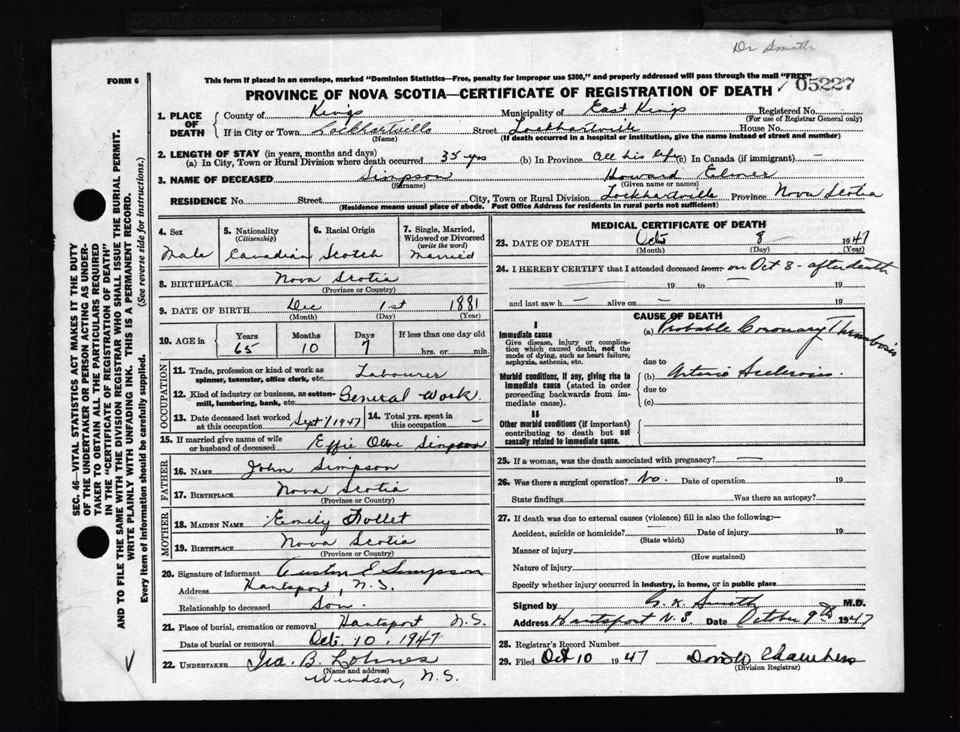 Dr Smith
FORM 6
This form if placed in an envelope, marked "Dominion Statistics—Free, penalty for improper use $300," and properly addressed will pass through the mail "FREE"
PROVINCE OF NOVA SCOTIA—CERTIFICATE OF REGISTRATION OF DEATH
05227
1. PLACE OF DEATH
County of Kings Municipality of East Kings Registered No.
(For use of Registrar General only)
If in City or Town Lockhartville Street Lockhartville House No.
(Name) (If death occurred in a hospital or institution, give the name instead of street and number)
2. LENGTH OF STAY (in years, months and days)
(a) In City, Town or Rural Division where death occurred 35 yrs (b) In Province all his life (c) In Canada (if immigrant) —
3. NAME OF DECEASED Simpson Howard Elmer
(Surname) (Given name or names)
RESIDENCE No. Street City, Town or Rural Division Lockhartville Province Nova Scotia
(Residence means usual place of abode. Post Office Address for residents in rural parts not sufficient)
4. Sex Male
5. Nationality (Citizenship) Canadian
6. Racial Origin Scotch
7. Single, Married, Widowed or Divorced (write the word) Married
8. BIRTHPLACE Nova Scotia
(Province or Country)
9. DATE OF BIRTH Dec 1st 1881
(Month) (Day) (Year)
10. AGE in Years 65 Months 10 Days 7 If less than one day old hrs. or min.
OCCUPATION
11. Trade, profession or kind of work as spinner, teamster, office clerk, etc. Labourer
12. Kind of industry or business, as cotton-mill, lumbering, bank, etc. General Work
13. Date deceased last worked at this occupation Sept/1947
14. Total yrs. spent in this occupation —
15. If married give name of wife or husband of deceased Effie Olive Simpson
FATHER
16. NAME John Simpson
17. BIRTHPLACE Nova Scotia
(Province or Country)
MOTHER
18. MAIDEN NAME Emily Follet
19. BIRTHPLACE Nova Scotia
(Province or Country)
20. Signature of informant Auston E Simpson
Address Hantsport, N.S.
Relationship to deceased Son.
21. Place of burial, cremation or removal Hantsport N.S.
Date of burial or removal Oct. 10, 1947
22. UNDERTAKER Ira. B. Lohnes
(Name and address)
Windsor, N.S.
MEDICAL CERTIFICATE OF DEATH
23. DATE OF DEATH Oct 8 1947
(Month) (Day) (Year)
24. I HEREBY CERTIFY that I attended deceased from: on Oct 8 - after death
— 19 to — 19
and last saw h — alive on — 19
CAUSE OF DEATH
I
Immediate cause
Give disease, injury or complication which caused death, not the mode of dying, such as heart failure, asphyxia, asthenia, etc.
(a) Probable Coronary Thrombosis
due to
Morbid conditions, if any, giving rise to immediate cause (stated in order proceeding backwards from immediate cause).
(b) Arterio Sclerosis.
due to
(c)
II
Other morbid conditions (if important) contributing to death but not causally related to immediate cause.
25. If a woman, was the death associated with pregnancy? —
26. Was there a surgical operation? No. Date of operation 19
State findings Was there an autopsy?
27. If death was due to external causes (violence) fill in also the following:—
Accident, suicide or homicide? — Date of injury 19
(State which)
Manner of injury
(How sustained)
Nature of injury
Specify whether injury occurred in industry, in home, or in public place
Signed by G K Smith M.D.
Address Hantsport N.S Date October 9th 1947
28. Registrar's Record Number
29. Filed Oct 10 1947 Donald Chambers
(Division Registrar)
SEC. 46—VITAL STATISTICS ACT MAKES IT THE DUTY
OF THE UNDERTAKER OR PERSON ACTING AS UNDER-
TAKER TO OBTAIN ALL THE PARTICULARS REQUIRED
IN THE "CERTIFICATE OF REGISTRATION OF DEATH"
AND TO FILE THE SAME WITH THE DIVISION REGISTRAR WHO SHALL ISSUE THE BURIAL PERMIT.
WRITE PLAINLY WITH UNFADING INK. THIS IS A PERMANENT RECORD.
Every item of information should be carefully supplied. (See reverse side for instructions.)